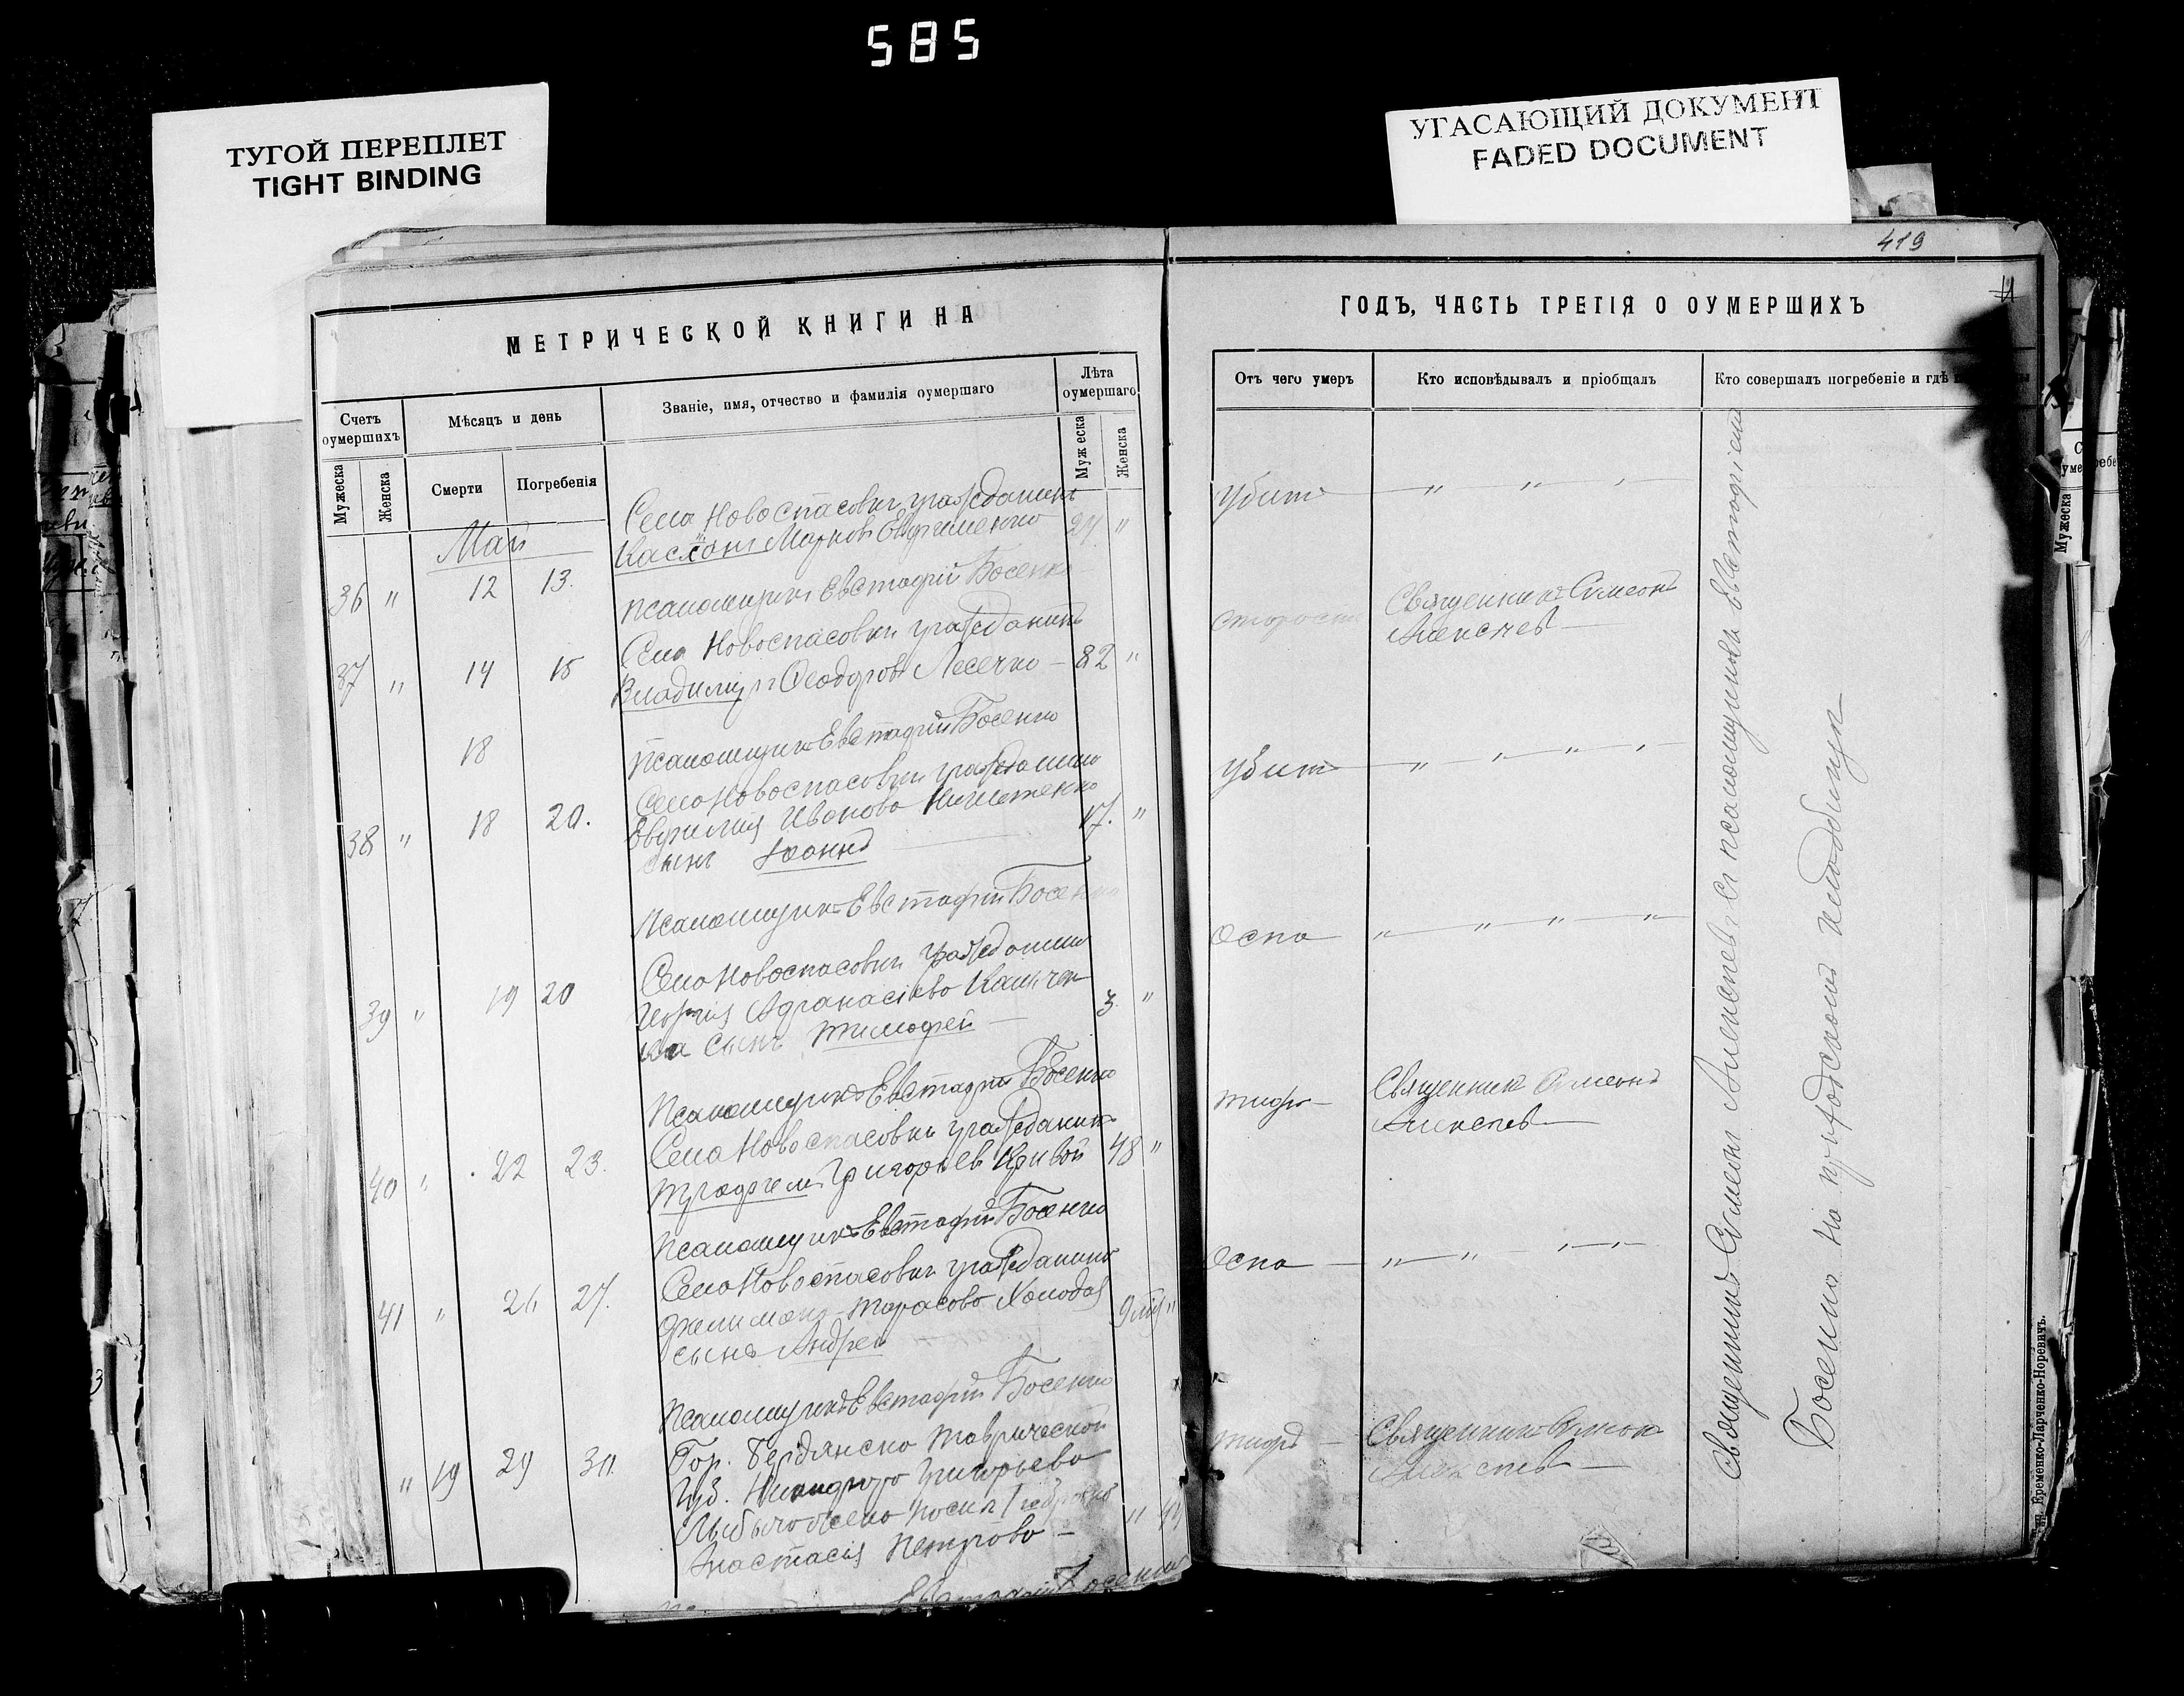 585
ТУГОЙ ПЕРЕПЛЕТ
TIGHT BINDING
УГАСАЮЩИЙ ДОКУМЕНТ
FADED DOCUMENT
419
МЕТРИЧЕСКОЙ КНИГИ НА
Счетъ оумершихъ
Мѣсяцъ и день
Званіе, имя, отчество и фамилія оумершаго
Лѣта оумершаго
Мужеска
Женска
Смерти
Погребенія
Муж еска
Женска
Май
Села Новоспасовки гражданинъ
36 " 12 13. Марковъ Евфименко 24 "
Псаломщикъ Евстафій Босенко
Села Новоспасовки гражданинъ
37 " 14 15 Владиміръ Феодоровъ Лесечко 82 "
18
Псаломщикъ Евстафій Босенко
Села Новоспасовки гражданина
38 " 18 20. Иванова
сынъ Іоаннъ 17. "
Псаломщикъ Евстафій Босенко
Села Новоспасовки гражданина
39 " 19 20 Георгія Афанасіева
ка сынъ Тимофей 3. "
Псаломщикъ Евстафій Босенко
Села Новоспасовки гражданинъ
40 " 22 23. Трофимъ Григорьев Кривой 48 "
Псаломщикъ Евстафій Босенко
Села Новоспасовки гражданина
41 " 26 27. Филимона Тарасова Холода
сынъ Андрей 9 "
Псаломщикъ Евстафій Босенко
Гор. Бердянска Таврической
" 19 29 30. Губ. Никифора Григорьева
жена
Анастасія Петрова
Евстафій Босенко
ГОДЪ, ЧАСТЬ ТРЕТІЯ О ОУМЕРШИХЪ
Отъ чего умеръ
Кто исповѣдывалъ и пріобщалъ
Кто совершалъ погребеніе и гдѣ
убитъ " " "
старости Священникъ Симеонъ
Алексѣевъ
убитъ " " " "
Оспа " " " "
тифъ Священникъ Симеонъ
Алексѣевъ
Оспа " " " "
тифъ Священникъ Симеонъ
Алексѣевъ
Священникъ Симеонъ Алексѣевъ съ псаломщикомъ Евстафіемъ
Босенко на приходскомъ кладбищѣ
Еременко-Ларченко-Норевичъ.